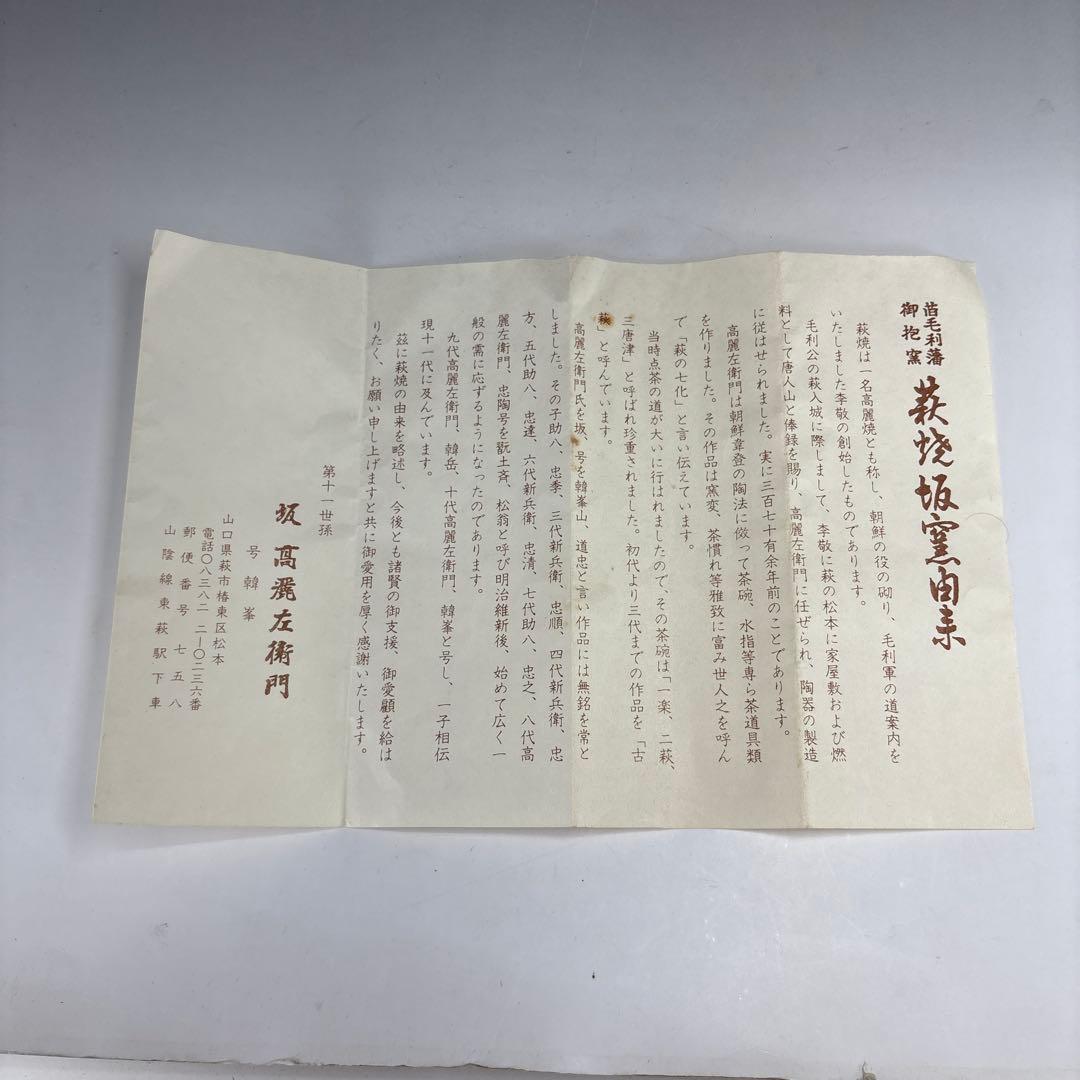 旧毛利藩
御抱窯
萩焼坂窯由来
萩焼は一名高麗焼とも称し、朝鮮の役の砌り、毛利軍の道案内を
いたしました李敬の創始したものであります。
毛利公の萩入城に際しまして、李敬に萩の松本に家屋敷および燃
料として唐人山と俸録を賜り、高麗左衛門に任ぜられ、陶器の製造
に従はせられました。実に三百七十有余年前のことであります。
高麗左衛門は朝鮮韋登の陶法に倣って茶碗、水指等専ら茶道具類
を作りました。その作品は窯変、茶慣れ等雅致に富み世人之を呼ん
で「萩の七化」と言い伝えています。
当時点茶の道が大いに行はれましたので、その茶碗は「一楽、二萩、
三唐津」と呼ばれ珍重されました。初代より三代までの作品を「古
萩」と呼んでいます。
高麗左衛門氏を坂、号を韓峯山、道忠と言い作品には無銘を常と
しました。その子助八、忠季、三代新兵衛、忠順、四代新兵衛、忠
方、五代助八、忠達、六代新兵衛、忠清、七代助八、忠之、八代高
麗左衛門、忠陶号を翫土斉、松翁と呼び明治維新後、始めて広く一
般の需に応ずるようになったのであります。
九代高麗左衛門、韓岳、十代高麗左衛門、韓峯と号し、一子相伝
現十一代に及んでいます。
茲に萩焼の由来を略述し、今後とも諸賢の御支援、御愛顧を給は
りたく、お願い申し上げますと共に御愛用を厚く感謝いたします。
第十一世孫
坂高麗左衛門
号韓峯
山口県萩市椿東区松本
電話〇八三八二 二—〇二三六番
郵便番号七五八
山陰線東萩駅下車